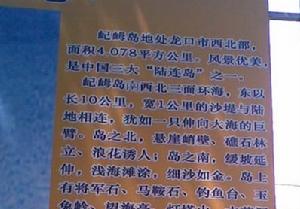 屺㟂岛地处龙口市西北部，
面积4.078平方公里。风景优美，
是中国三大“陆连岛”之一。
屺㟂岛南西北三面环海，东以
长10公里，宽1公里的沙堤与陆
地相连，犹如一只伸向大海的巨
臂。岛之北，悬崖峭壁、礁石林
立、浪花诱人；岛之南，缓坡延
伸，浅海滩涂，细沙如金。岛上
有将军石、马鞍石、钓鱼台、玉
兔岭、望海亭、灯塔